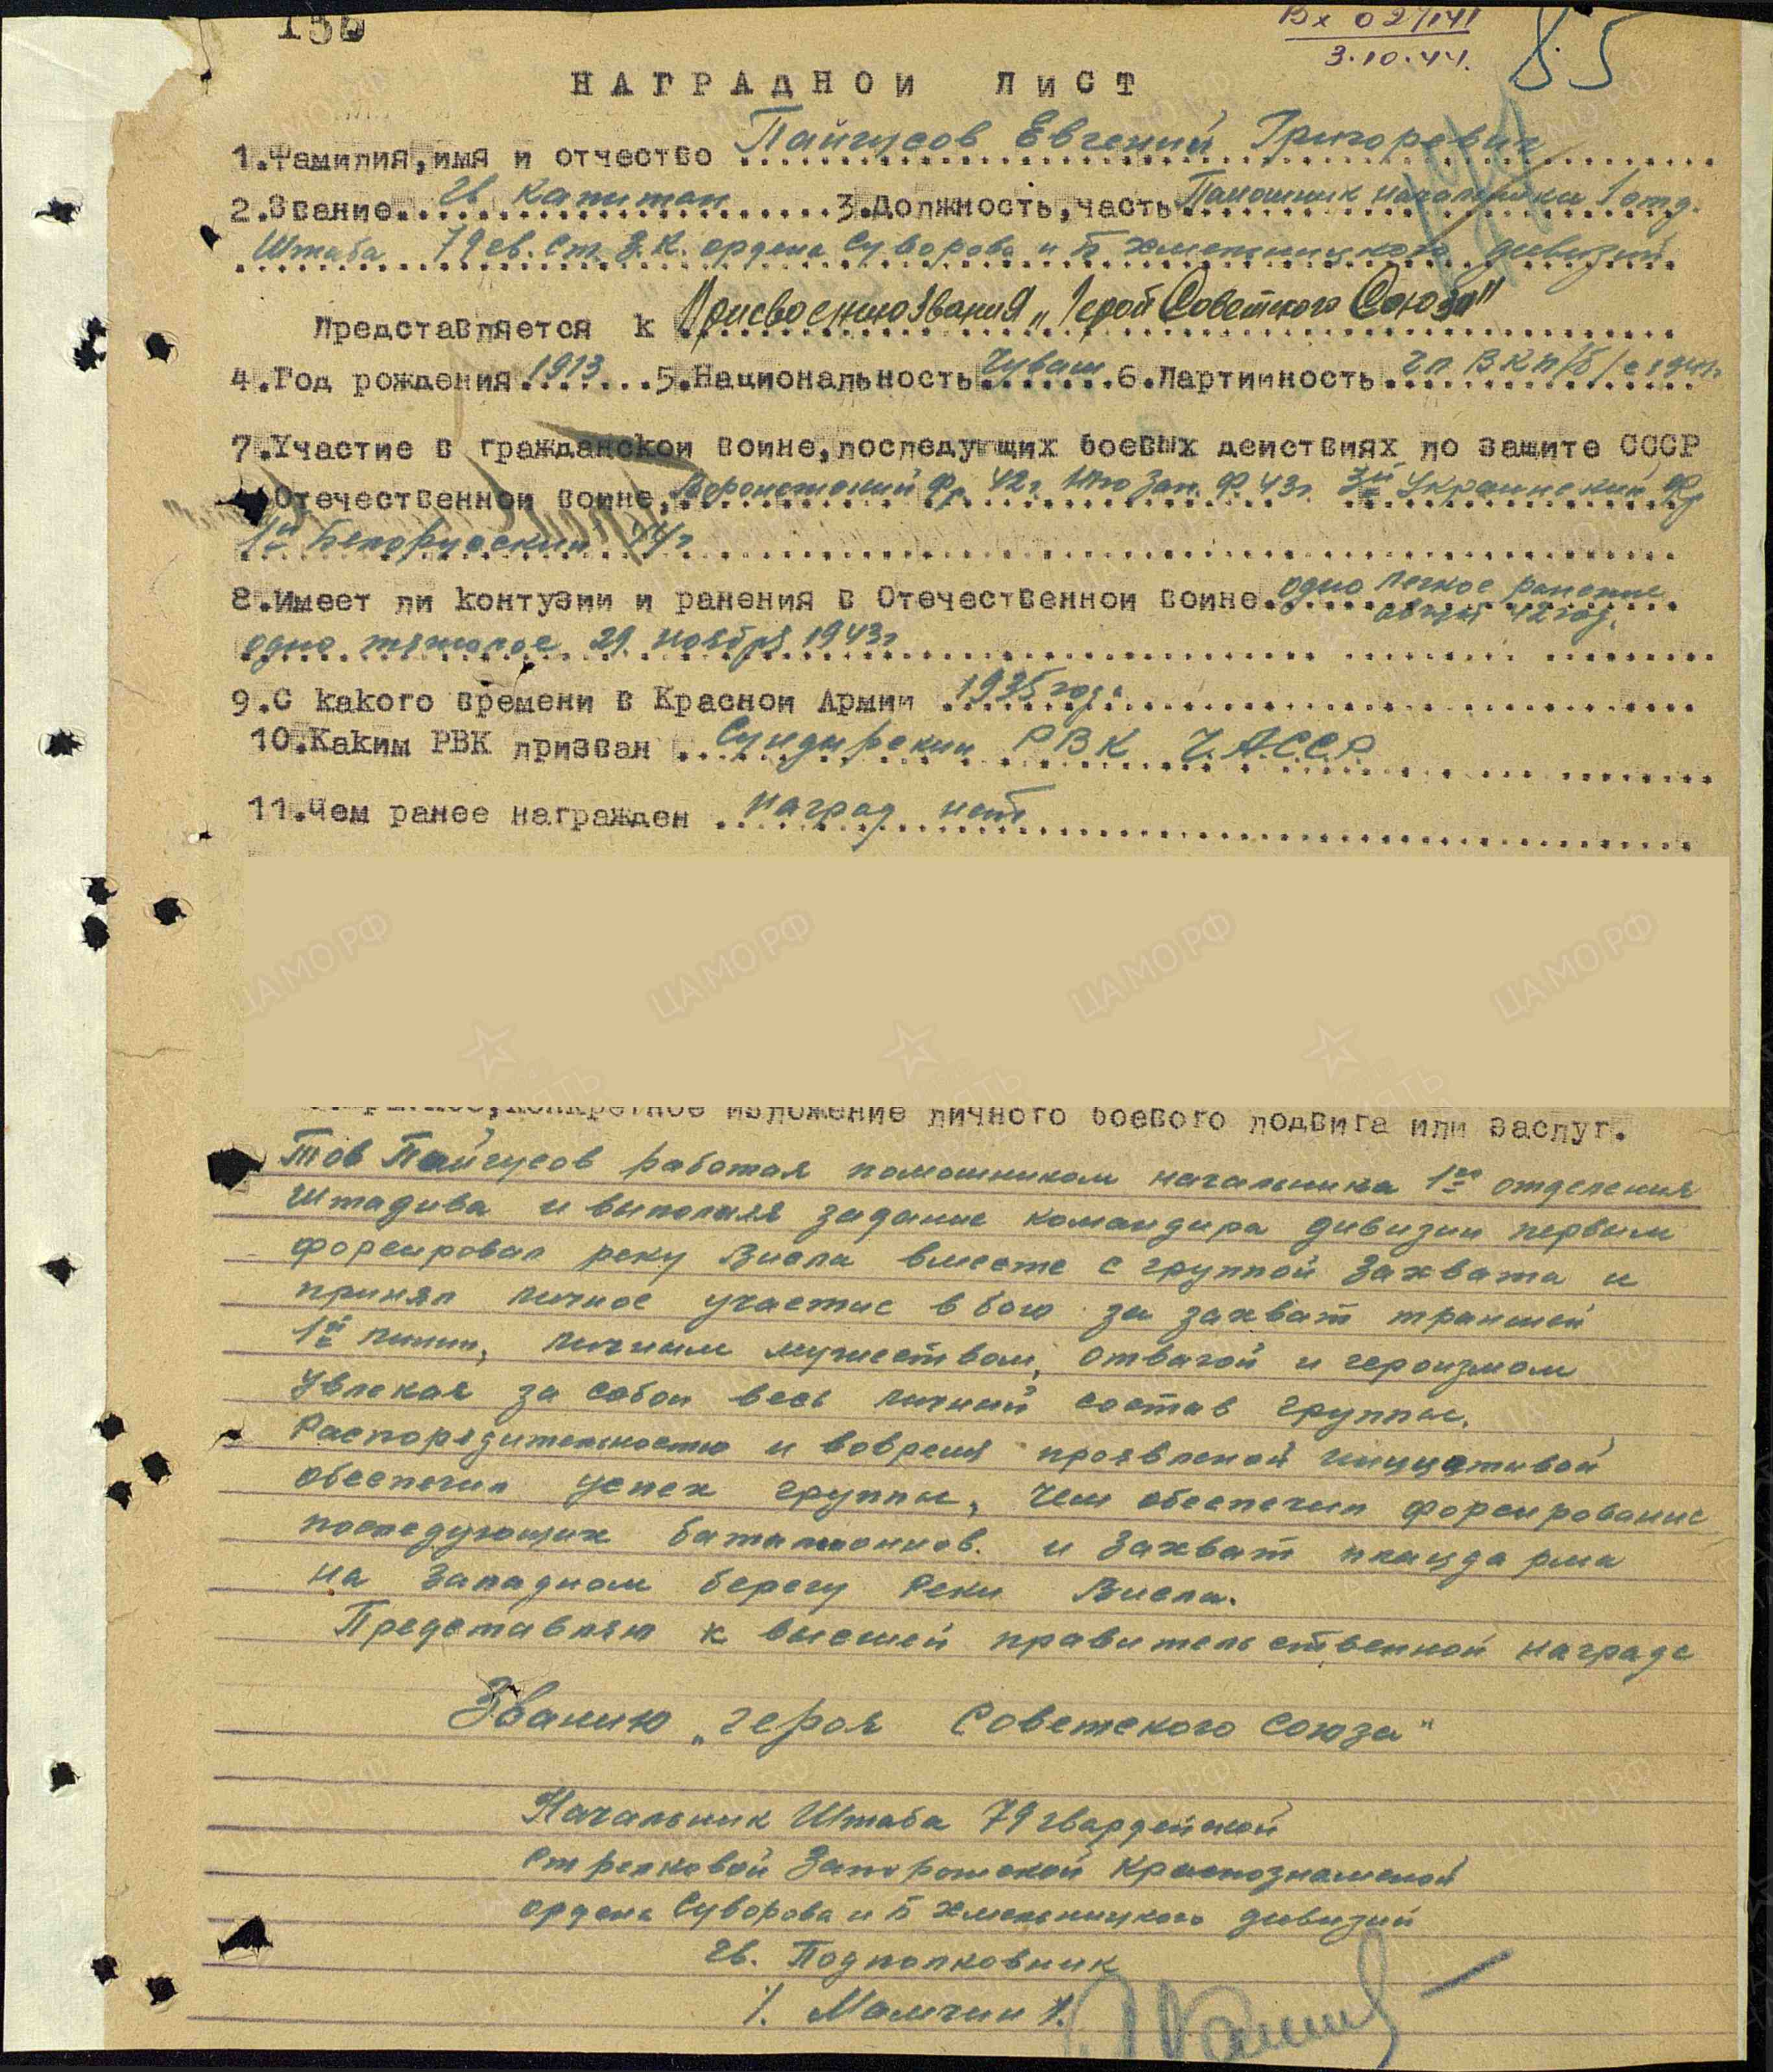 156
Вх 02/141
3.10.44.
85
НАГРАДНОЙ ЛИСТ
1.Фамилия,имя и отчество Пайгусов Евгений Григоревич
2.Звание Гв Капитан 3.Должность,часть Памошник начальника 1 отд.
Штаба 79 гв. Ст. З.К. ордена Суворова и Б Хмельницкого дивизий
Представляется к Присвоению звания „Герой Советского Союза"
4.Год рождения 1913 5.Национальность Чуваш 6.Партийность чл ВКП/б/ с 1941г
7.Участие в гражданской войне,последующих боевых действиях по защите СССР
Отечественной войне, Воронежский Фр. 42г Юго Зап. Ф. 43г. 3й Украинский Фр
1й Белоруский 44г
8.Имеет ли контузии и ранения в Отечественной войне. одно легкое ранение
август 42 год.
одно тяжолое 29 ноября 1943г
9.С какого времени в Красной Армии 1935 года
10.Каким РВК призван Сундырский РВК Ч.А.С.С.Р.
11.Чем ранее награжден наград нет
конкретное изложение личного боевого подвига или заслуг.
Тов Пайгусов работая помошником начальника 1го отделения
Штадива и выполняя задание командира дивизии первым
форсировал реку Висла вместе с группой захвата и
принял личное участие в бою за захват траншей
1й линии, личным мужеством, отвагой и героизмом
увлекая за собой весь личный состав группы.
Распорядительностью и вовремя проявленой инициативой
обеспечил успех группы, чем обеспечил форсирование
последующих баталионнов. и захват плацдарма
на Западном берегу Реки Висла.
Представляю к высшей правительственной награде
Званию „героя Советского Союза"
Начальник Штаба 79 гвардейской
Стрелковой Запорожской Краснознаменой
ордена Суворова и Б Хмельницкого дивизии
Гв. Подполковник
/. Мамчин /.